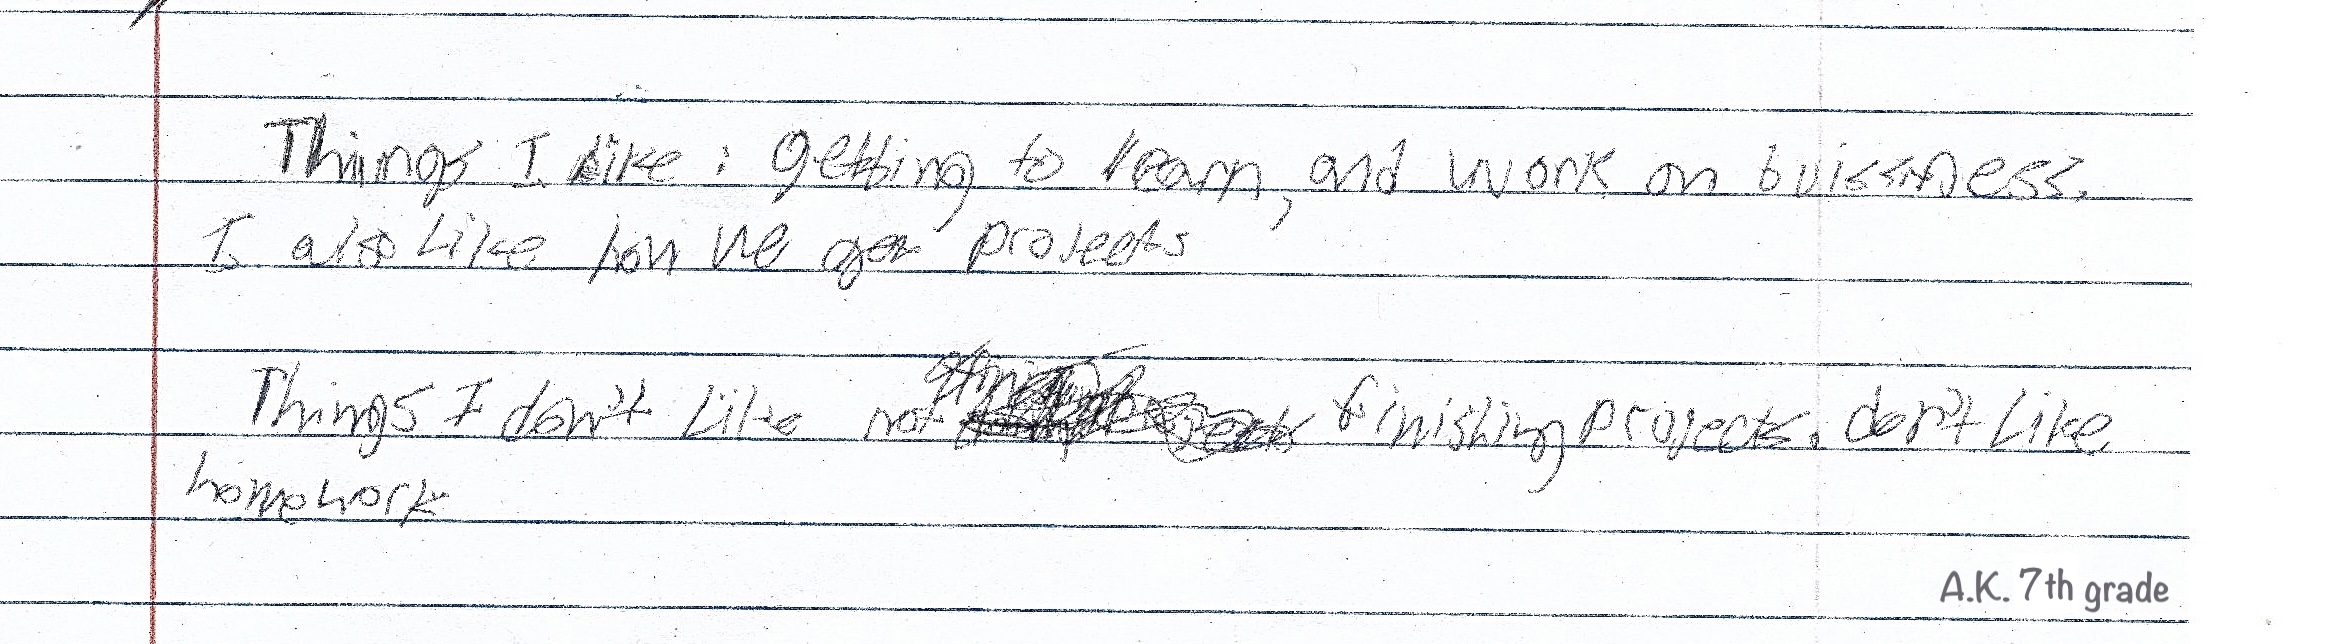 Things I like : getting to learn, and work on buissness.
I also like how we get projects
Things I don't Like not finishing projects. don't Like
homework
A.K. 7th grade